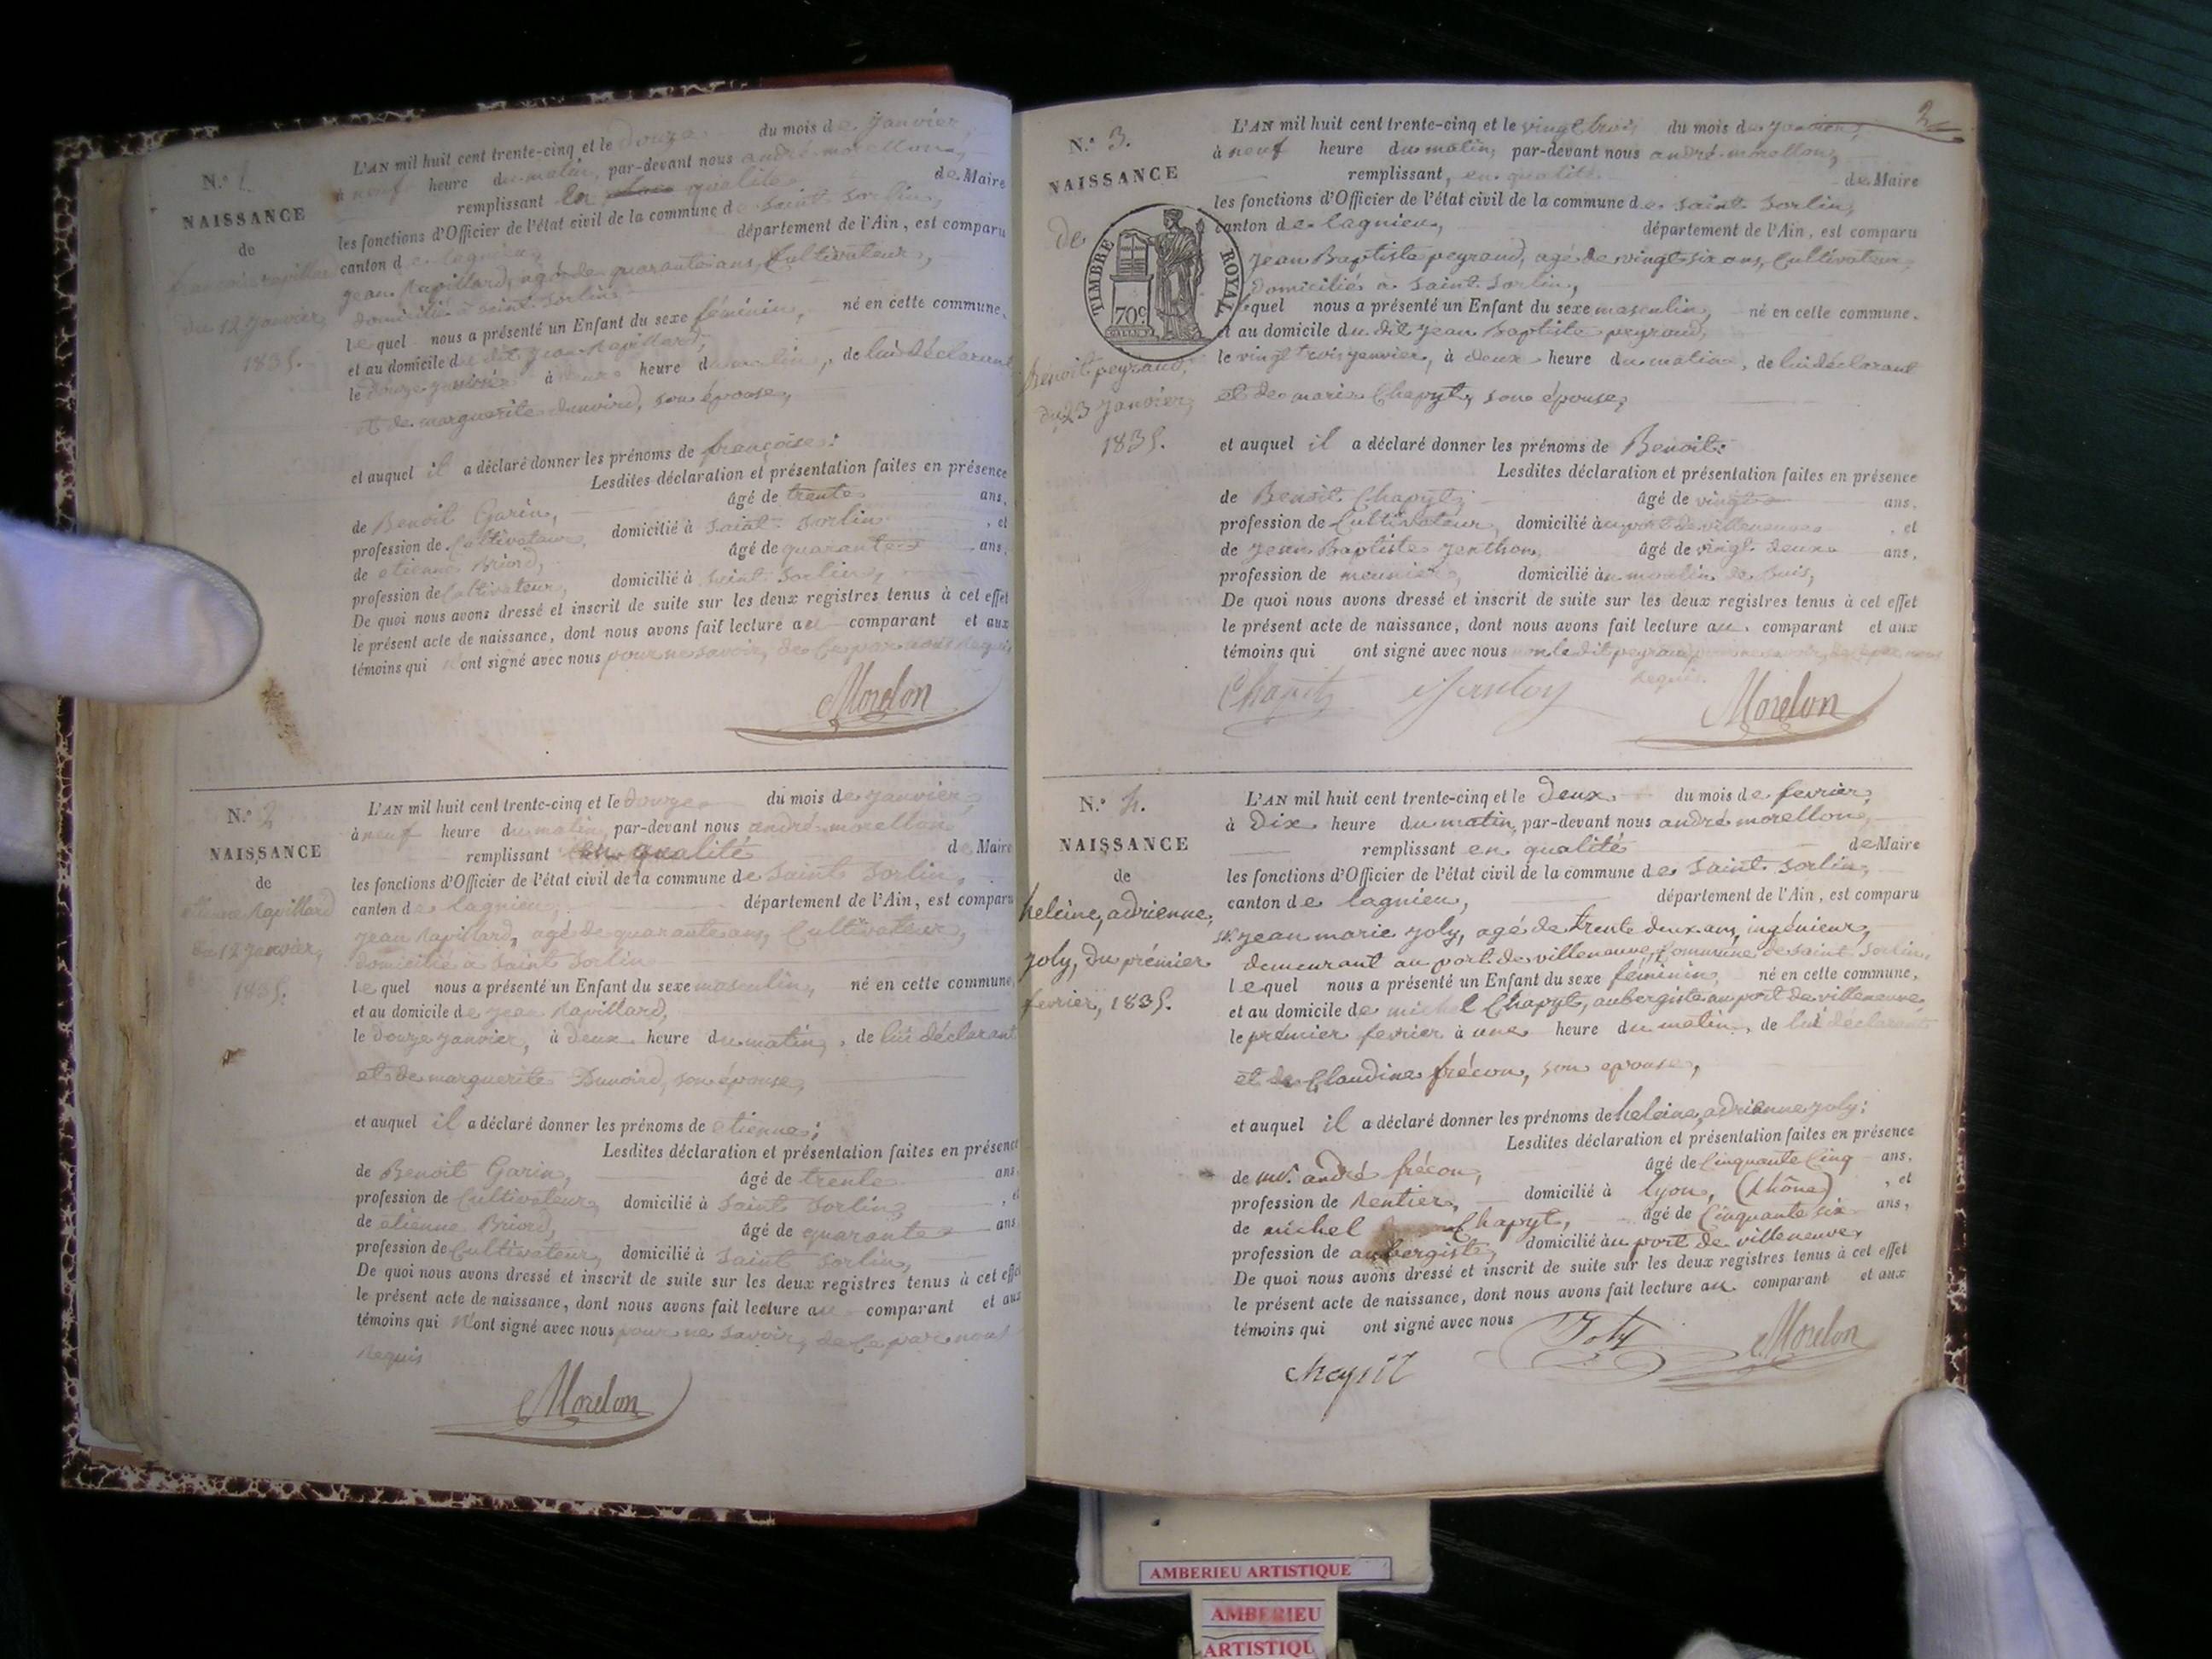 N.º 1.
NAISSANCE
de
françoise ravillard
du 12 janvier,
1835.
L'AN mil huit cent trente-cinq et le douze du mois de janvier,
à neuf heure du matin, par-devant nous andré morellon,
remplissant en qualité de Maire
les fonctions d'Officier de l'état civil de la commune de saint Sorlin,
canton de lagnieu, département de l'Ain, est comparu
jean Ravillard, agé de quarante ans, Cultivateur,
domicilié à saint Sorlin,
lequel nous a présenté un Enfant du sexe féminin, né en cette commune,
et au domicile du dit jean Ravillard,
le douze janvier à deux heure du matin, de lui déclarant
et de marguerite dunoird, son épouse,
et auquel il a déclaré donner les prénoms de françoise;
Lesdites déclaration et présentation faites en présence
de Benoit Garin, âgé de trente ans,
profession de Cultivateur, domicilié à Saint Sorlin, et
de etienne Briord, âgé de quarante ans,
profession de Cultivateur, domicilié à Saint Sorlin,
De quoi nous avons dressé et inscrit de suite sur les deux registres tenus à cet effet
le présent acte de naissance, dont nous avons fait lecture au comparant et aux
témoins qui n'ont signé avec nous pour ne savoir, de ce par nous requis
Morelon
N.º 2
NAISSANCE
de
etienne Ravillard
du 12 janvier,
1835.
L'AN mil huit cent trente-cinq et le douze du mois de janvier,
à neuf heure du matin, par-devant nous andré morellon
remplissant en qualité de Maire
les fonctions d'Officier de l'état civil de la commune de Saint Sorlin,
canton de lagnieu, département de l'Ain, est comparu
jean Ravillard, agé de quarante ans, Cultivateur,
domicilié à Saint Sorlin
lequel nous a présenté un Enfant du sexe masculin, né en cette commune,
et au domicile de jean Ravillard,
le douze janvier, à deux heure du matin, de lui déclarant
et de marguerite Dunoird, son épouse,
et auquel il a déclaré donner les prénoms de etienne;
Lesdites déclaration et présentation faites en présence
de Benoit Garin, âgé de trente ans,
profession de Cultivateur, domicilié à Saint Sorlin, et
de etienne Briord, âgé de quarante ans
profession de Cultivateur, domicilié à Saint Sorlin,
De quoi nous avons dressé et inscrit de suite sur les deux registres tenus à cet effet
le présent acte de naissance, dont nous avons fait lecture au comparant et aux
témoins qui n'ont signé avec nous pour ne savoir, de ce par nous
requis
Morelon
N.º 3.
NAISSANCE
de
TIMBRE ROYAL
70c
Benoit peyraud,
du 23 janvier,
1835.
L'AN mil huit cent trente-cinq et le vingt trois du mois de janvier,
à neuf heure du matin, par-devant nous andré morellon,
remplissant, en qualité de Maire
les fonctions d'Officier de l'état civil de la commune de Saint Sorlin,
canton de lagnieu, département de l'Ain, est comparu
jean Baptiste peyraud, agé de vingt six ans, Cultivateur,
domicilié à Saint Sorlin,
lequel nous a présenté un Enfant du sexe masculin, né en cette commune.
et au domicile du dit jean Baptiste peyraud,
le vingt trois janvier, à deux heure du matin, de lui déclarant
et de marie Chapyt, son épouse,
et auquel il a déclaré donner les prénoms de Benoit;
Lesdites déclaration et présentation faites en présence
de Benoit Chapyt, âgé de vingt ans,
profession de Cultivateur, domicilié au port de villeneuve, et
de jean Baptiste jenthon, âgé de vingt deux ans,
profession de meunier, domicilié au moulin de Buis,
De quoi nous avons dressé et inscrit de suite sur les deux registres tenus à cet effet
le présent acte de naissance, dont nous avons fait lecture au comparant et aux
témoins qui ont signé avec nous non le dit peyraud pour ne savoir, de ce par nous
requis.
Morelon
N.º 4.
NAISSANCE
de
heleine, adrienne,
joly, du prémier
fevrier, 1835.
L'AN mil huit cent trente-cinq et le deux du mois de fevrier,
à Dix heure du matin, par-devant nous andré morellon,
remplissant en qualité de Maire
les fonctions d'Officier de l'état civil de la commune de Saint Sorlin,
canton de lagnieu, département de l'Ain, est comparu
Sr. jean marie joly, agé de trente deux ans, ingénieur,
demeurant au port de villeneuve, Commune de saint Sorlin,
lequel nous a présenté un Enfant du sexe feminin, né en cette commune,
et au domicile de michel Chapyt, aubergiste au port de villeneuve,
le prémier fevrier à une heure du matin, de lui déclarant
et de Claudine frécon, son epouse,
et auquel il a déclaré donner les prénoms de heleine, adrienne joly;
Lesdites déclaration et présentation faites en présence
de mr. andré frécon, âgé de Cinquante Cinq ans,
profession de Rentier, domicilié à lyon, (Rhône), et
de michel Chapyt, âgé de Cinquante six ans,
profession de aubergiste, domicilié au port de villeneuve,
De quoi nous avons dressé et inscrit de suite sur les deux registres tenus à cet effet
le présent acte de naissance, dont nous avons fait lecture au comparant et aux
témoins qui ont signé avec nous
Joly Morelon
AMBERIEU ARTISTIQUE
AMBERIEU
ARTISTIQU